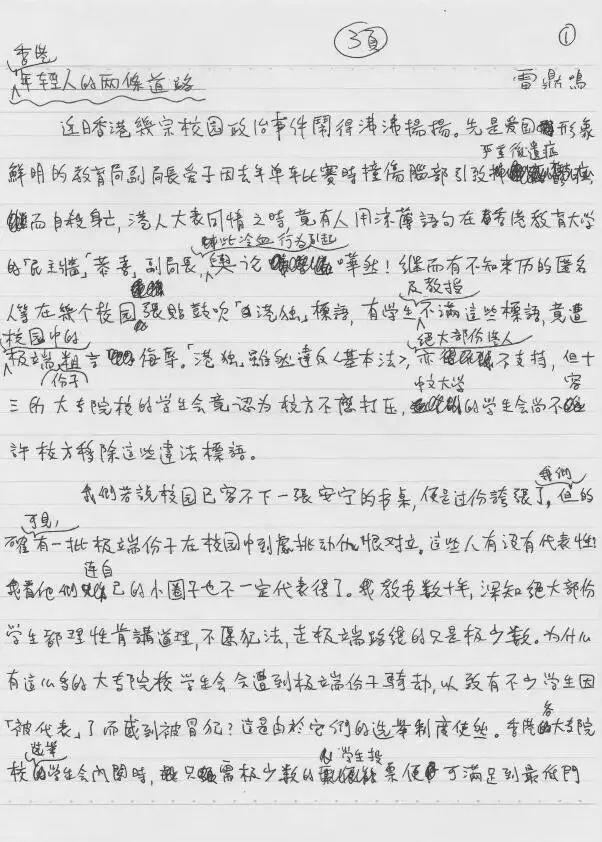 3頁
①
香港
年輕人的兩條道路
雷鼎鳴
近日香港幾宗校园政治事件鬧得沸沸揚揚。先是爱国形象
嚴重後遺症
鮮明的教育局副局長爱子因去年单车比賽時撞傷腦部引致
而自殺身亡，港人大表同情之時竟有人用涼薄語句在香港教育大学
這些冷血行为引起
的「民主牆」「恭喜」副局長，輿论嘩然！继而有不知来历的匿名
及教授
人等在幾个校园張貼鼓吹「港独」標語，有学生不满這些標語，竟遭
校园中的
絕大部份港人
極端份子粗言侮辱。「港独」雖然違反《基本法》，亦不支持，但十
中文大学
容
三间大专院校的学生会竟認为校方不應打压，的学生会尚不
許校方移除這些違法標語。
我們若說校园已容不下一張安宁的书桌，便是过份誇張了，但的
我們
可見，
確有一批極端份子在校园中到處挑动仇恨对立。這些人有沒有代表性？
連自
我看他們己的小圈子也不一定代表得了。我教书数十年，深知絕大部份
学生都理性肯講道理，不愿犯法，走極端路線的只是極少数。为什么
有這么多的大专院校学生会会遭到極端份子騎劫，以致有不少学生因
「被代表」了而感到被冒犯？這是由於它們的选举制度使然。香港各大专院
选举
学生投
校学生会內閣時，只需極少数的票便可滿足到最低門